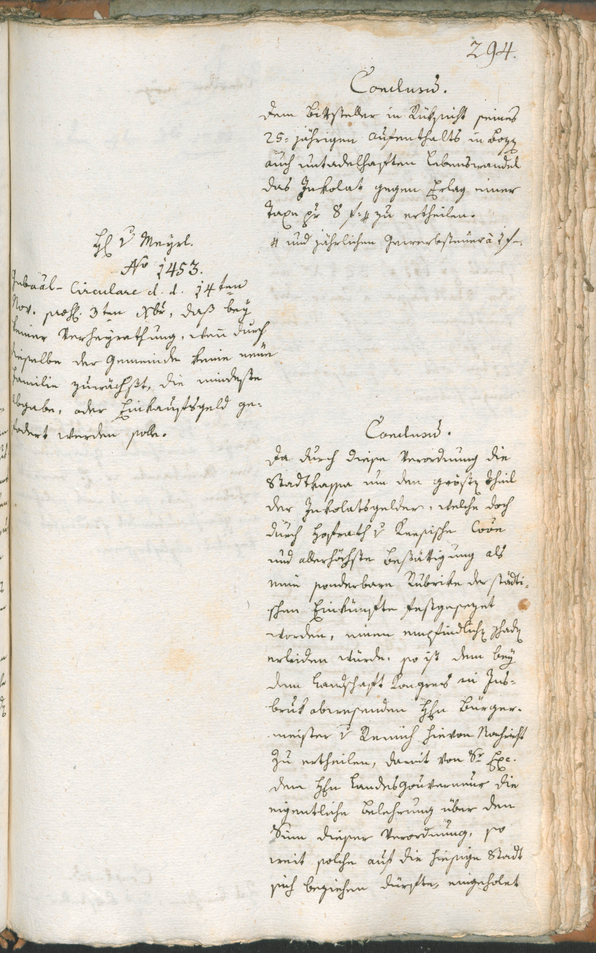 294.
Conclusum.
dem Bittsteller in Rücksicht seines
25-jährigen Aufenthalts in Boz
auch untadelhaften Lebenswandel
das Inkolat gegen Erlag einer
Taxe pr 8 f. zu ertheilen.
und jährlichen Gewerbsteuer à 1 f.
H. v Meyrl.
No 1453.
Gubaal-Circulare d. d. 14ten
Nov. 3ten Xbr, daß bey
keiner Verheyrathung, wenn durch
dieselbe der Gemeinde keine neue
Familie zuwächßt, die mindeste
Abgabe, oder Einkaufsgeld ge-
fodert werden solle.
Conclusum.
Da durch diese Verordnung die
Stadtkassa um den größten Theil
der Inkolatsgelder, welche doch
durch Hofrath v
und allerhöchste Bestätigung als
eine sonderbare Rubrike der städti-
schen Einkünfte festgesezet
worden, einen empfindlichen Schaden
erleiden würde, so ist dem bey
dem Landschaft Kongress in Ins-
bruk abwesenden Hhn Bürger-
meister v hievon Nachricht
zu ertheilen, damit von Sr Exc.
dem Hhn Landesgouverneur die
eigentliche Belehrung über den
Sinn dieser Verordnung, so
weit solche auf die hiesige Stadt
sich beziehen dürfte, eingeholet